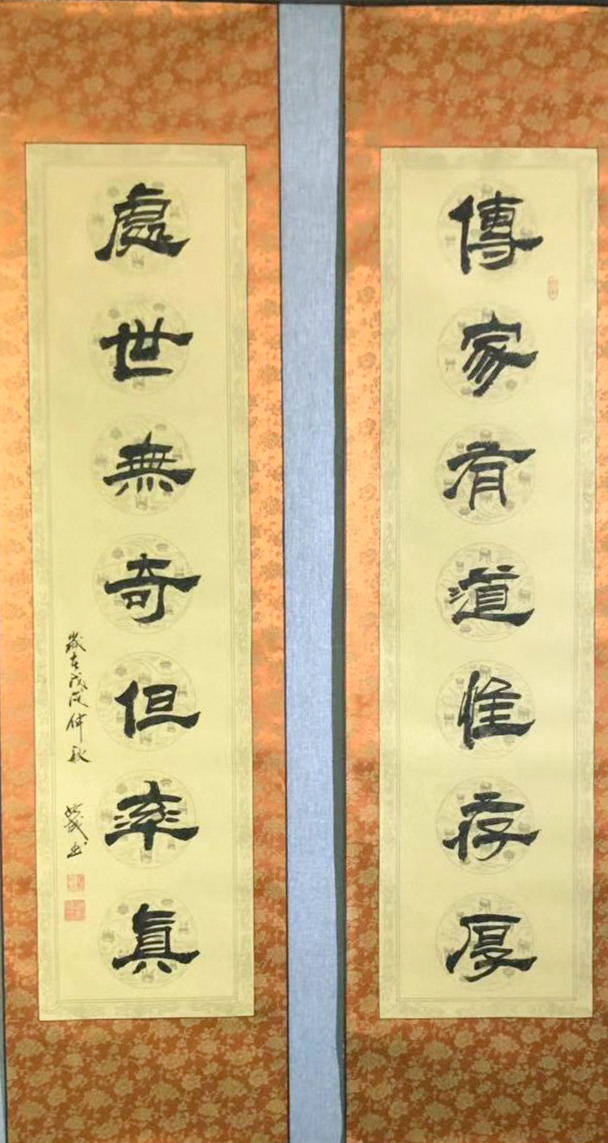 傳家有道惟存厚
處世無奇但率真
歲在戊戌仲秋